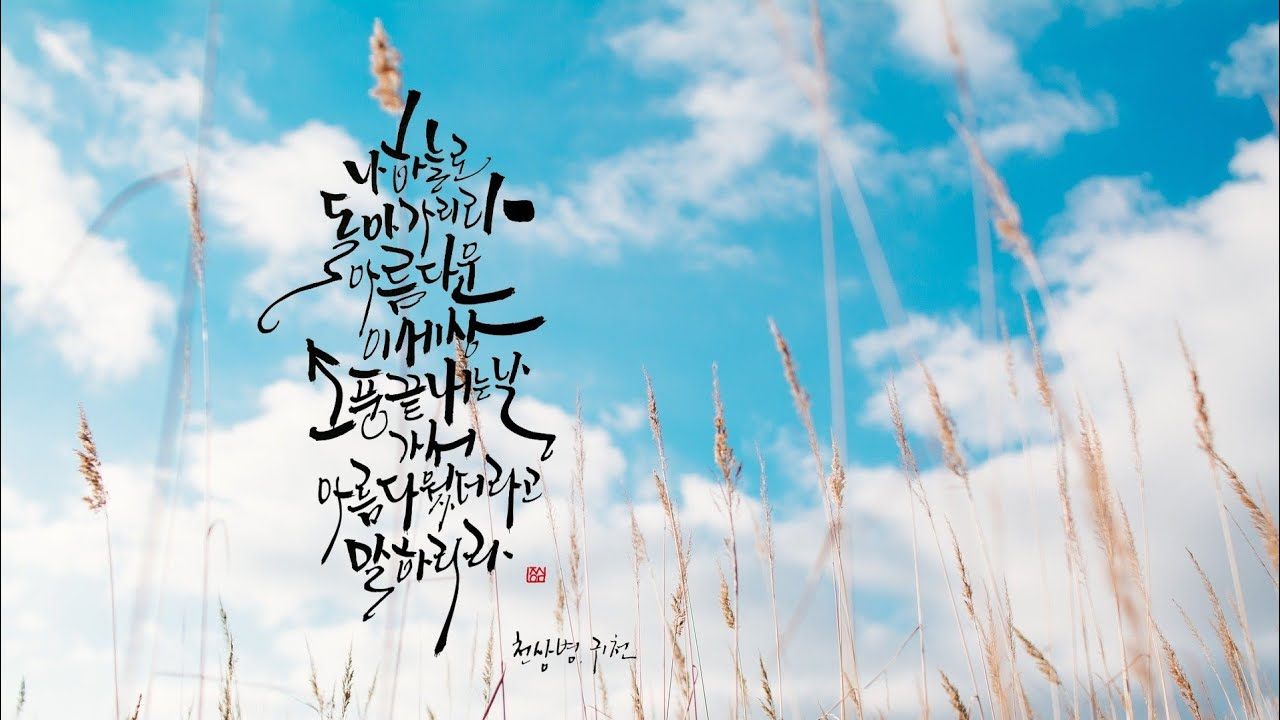 나 하늘로
돌아가리라
아름다운
이 세상
소풍 끝내는 날
가서
아름다웠더라고
말하리라
천상병. 귀천